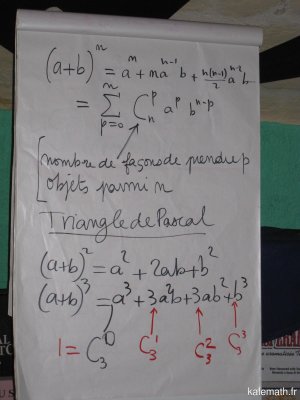 (a+b)^n = a^n + na^{n-1} b + \frac{n(n-1)}{2} a^{n-2} b
= \sum_{p=0}^{n} C_n^p a^p b^{n-p}
nombre de façons de prendre p
objets parmi n
Triangle de Pascal
(a+b)^2 = a^2 + 2ab + b^2
(a+b)^3 = a^3 + 3a^2b + 3ab^2 + b^3
1 = C_3^0 C_3^1 C_3^2 C_3^3
katemath.com